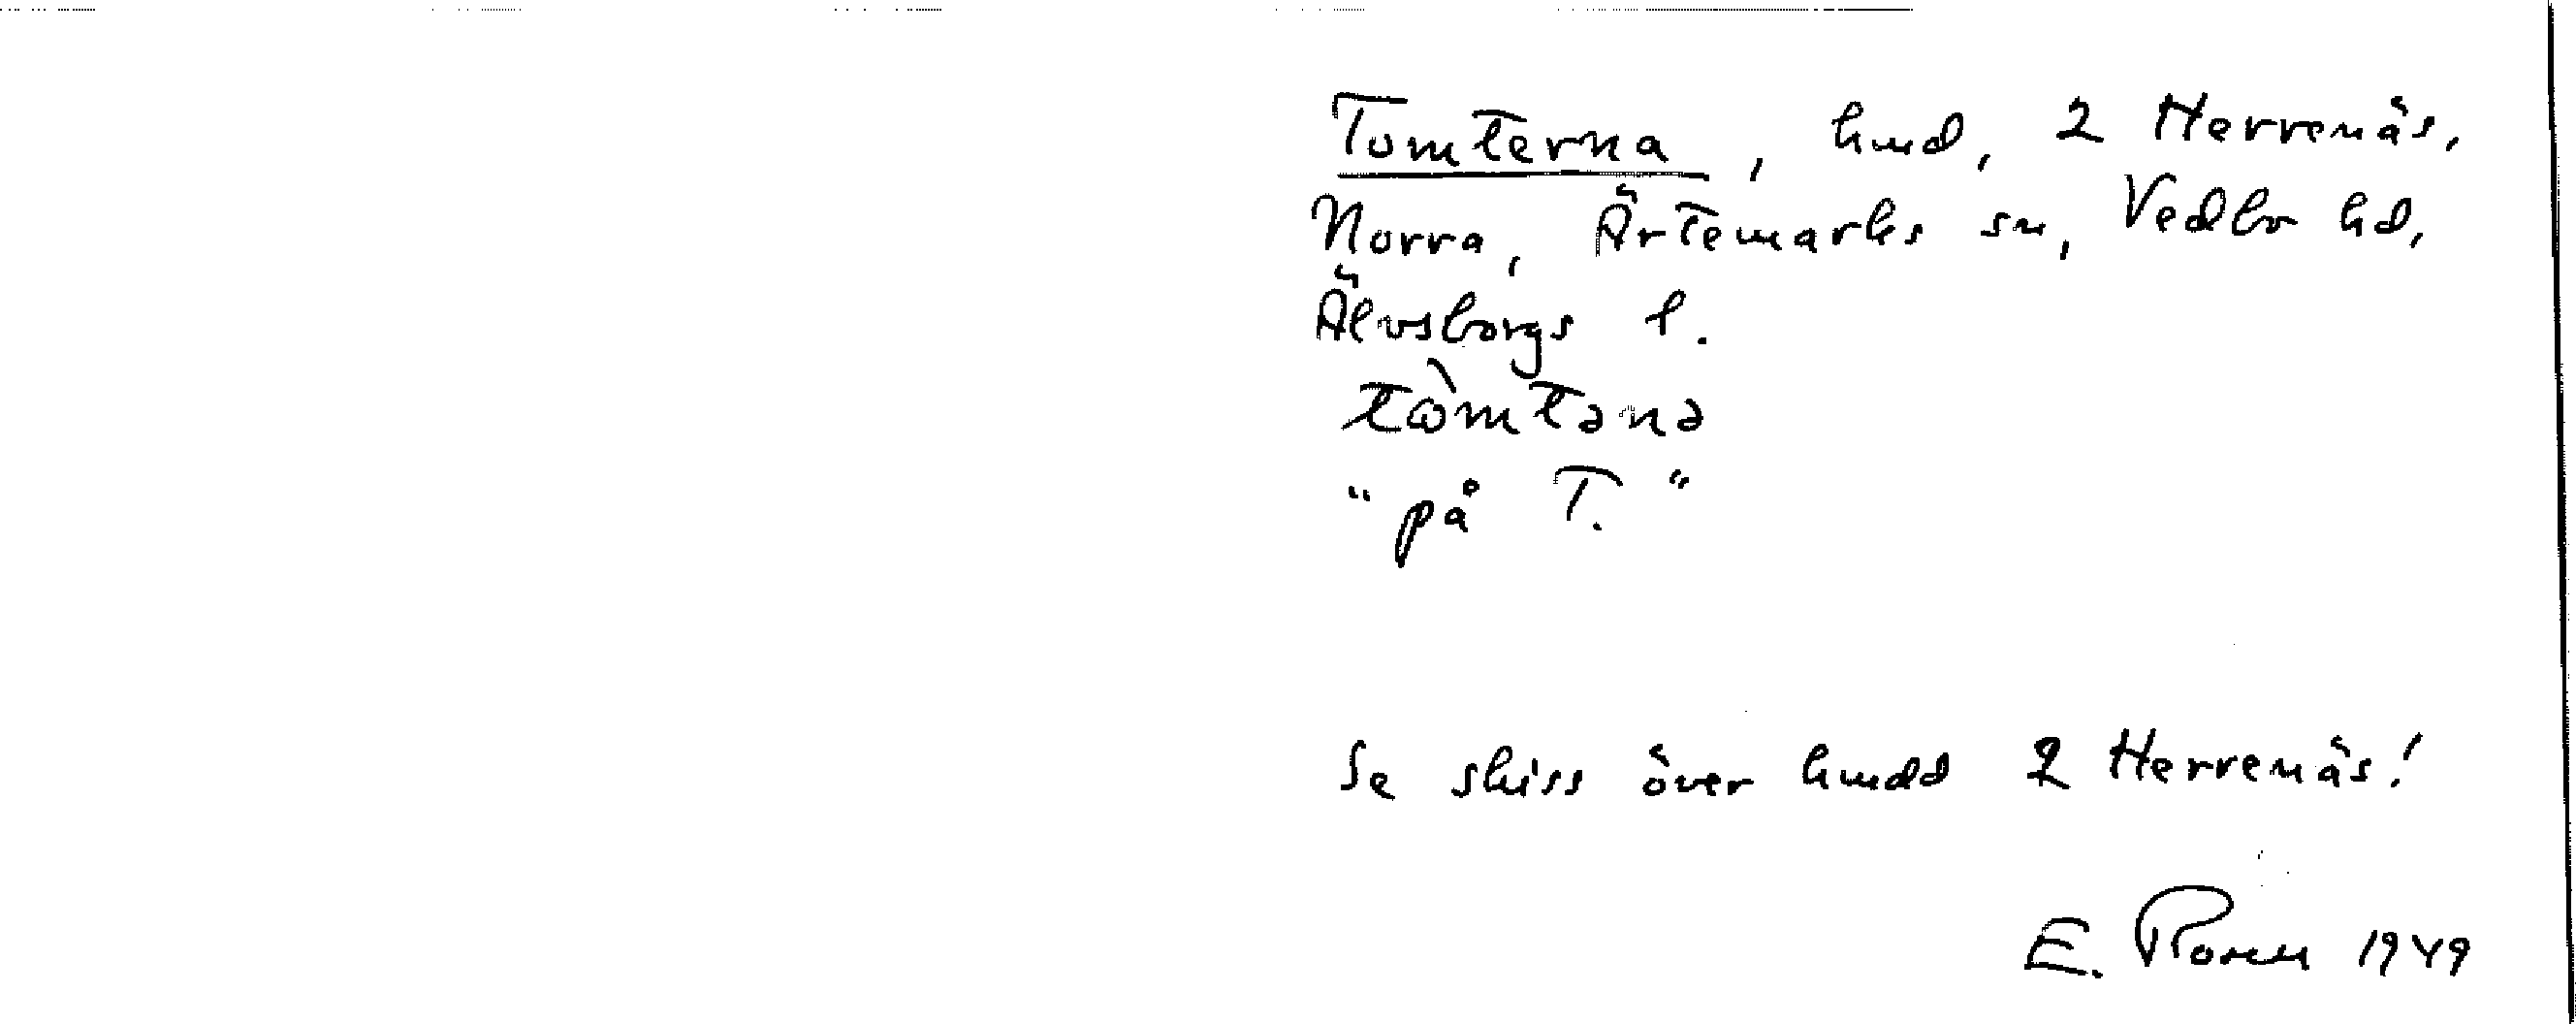 Tomterna, hmd, 2 Herrenäs,
Norra, Ärtemarks sn, Vedbo hd,
Älvsborgs l.
tὼmtənə
"på T."
Se skiss över hmdd 2 Herrenäs!
E. Rosén 1949